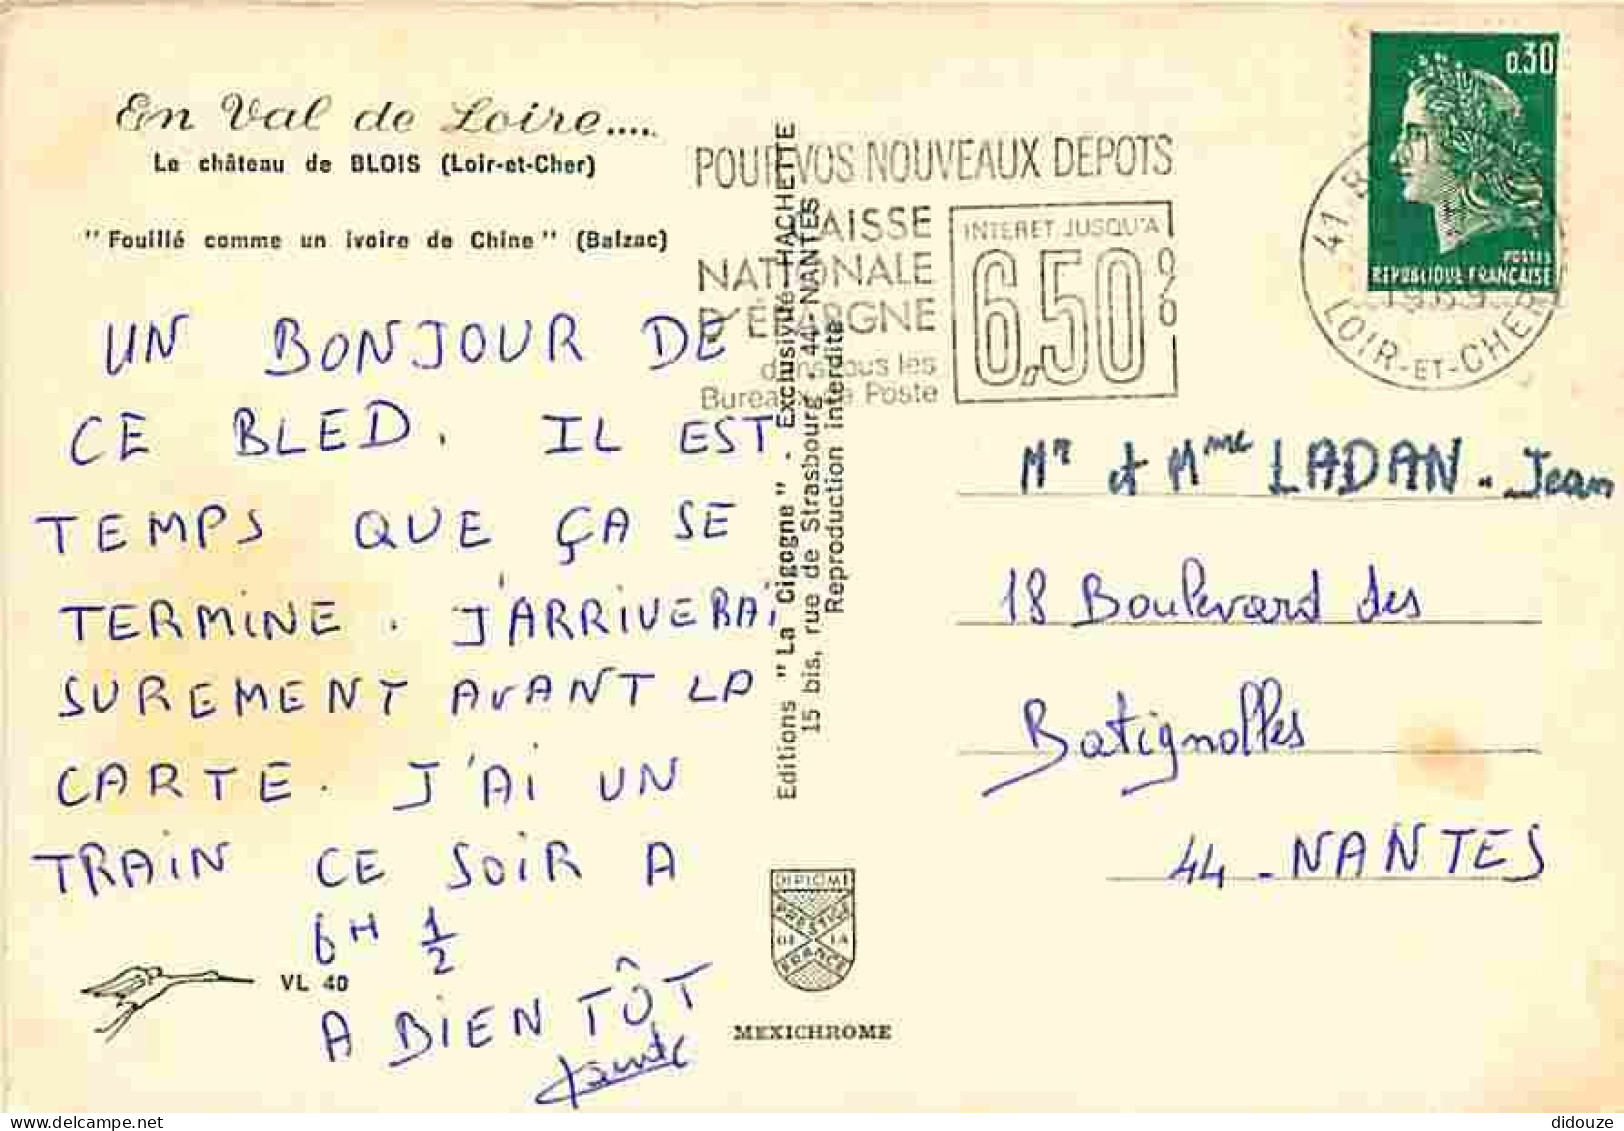 En Val de Loire.....
Le château de BLOIS (Loir-et-Cher)
"Fouillé comme un ivoire de Chine" (Balzac)
UN BONJOUR DE
CE BLED. IL EST
TEMPS QUE ÇA SE
TERMINE. J'ARRIVERAI
SUREMENT AVANT LA
CARTE. J'AI UN
TRAIN CE SOIR A
6H 1/2
A BIENTÔT
VL 40
Editions "La Cigogne". Exclusivité HACHETTE
15 bis, rue de Strasbourg - 44-NANTES
Reproduction interdite
DIPLOME
PRESTIGE
DE LA
FRANCE
MEXICHROME
POUR VOS NOUVEAUX DEPOTS
CAISSE
NATIONALE
D'ÉPARGNE
dans tous les
Bureaux de Poste
INTERET JUSQU'A
6,50 %
0,30
POSTES
REPUBLIQUE FRANÇAISE
41 B
1969
LOIR-ET-CHER
Mr et Mme LADAN - Jean
18 Boulevard des
Batignolles
44 - NANTES
didouze